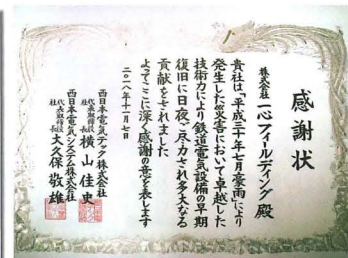 感謝状
株式会社 一心フィールディング 殿
貴社は「平成三十年七月豪雨」により
発生した災害において卓越した
技術力により鉄道電気設備の早期
復旧に日夜ご尽力され多大なる
貢献をされました
よってここに深く感謝の意を表します
二〇一八年十一月七日
西日本電気テック株式会社
代表取締役社長 横山佳史
西日本電気システム株式会社
代表取締役社長 大久保敬雄